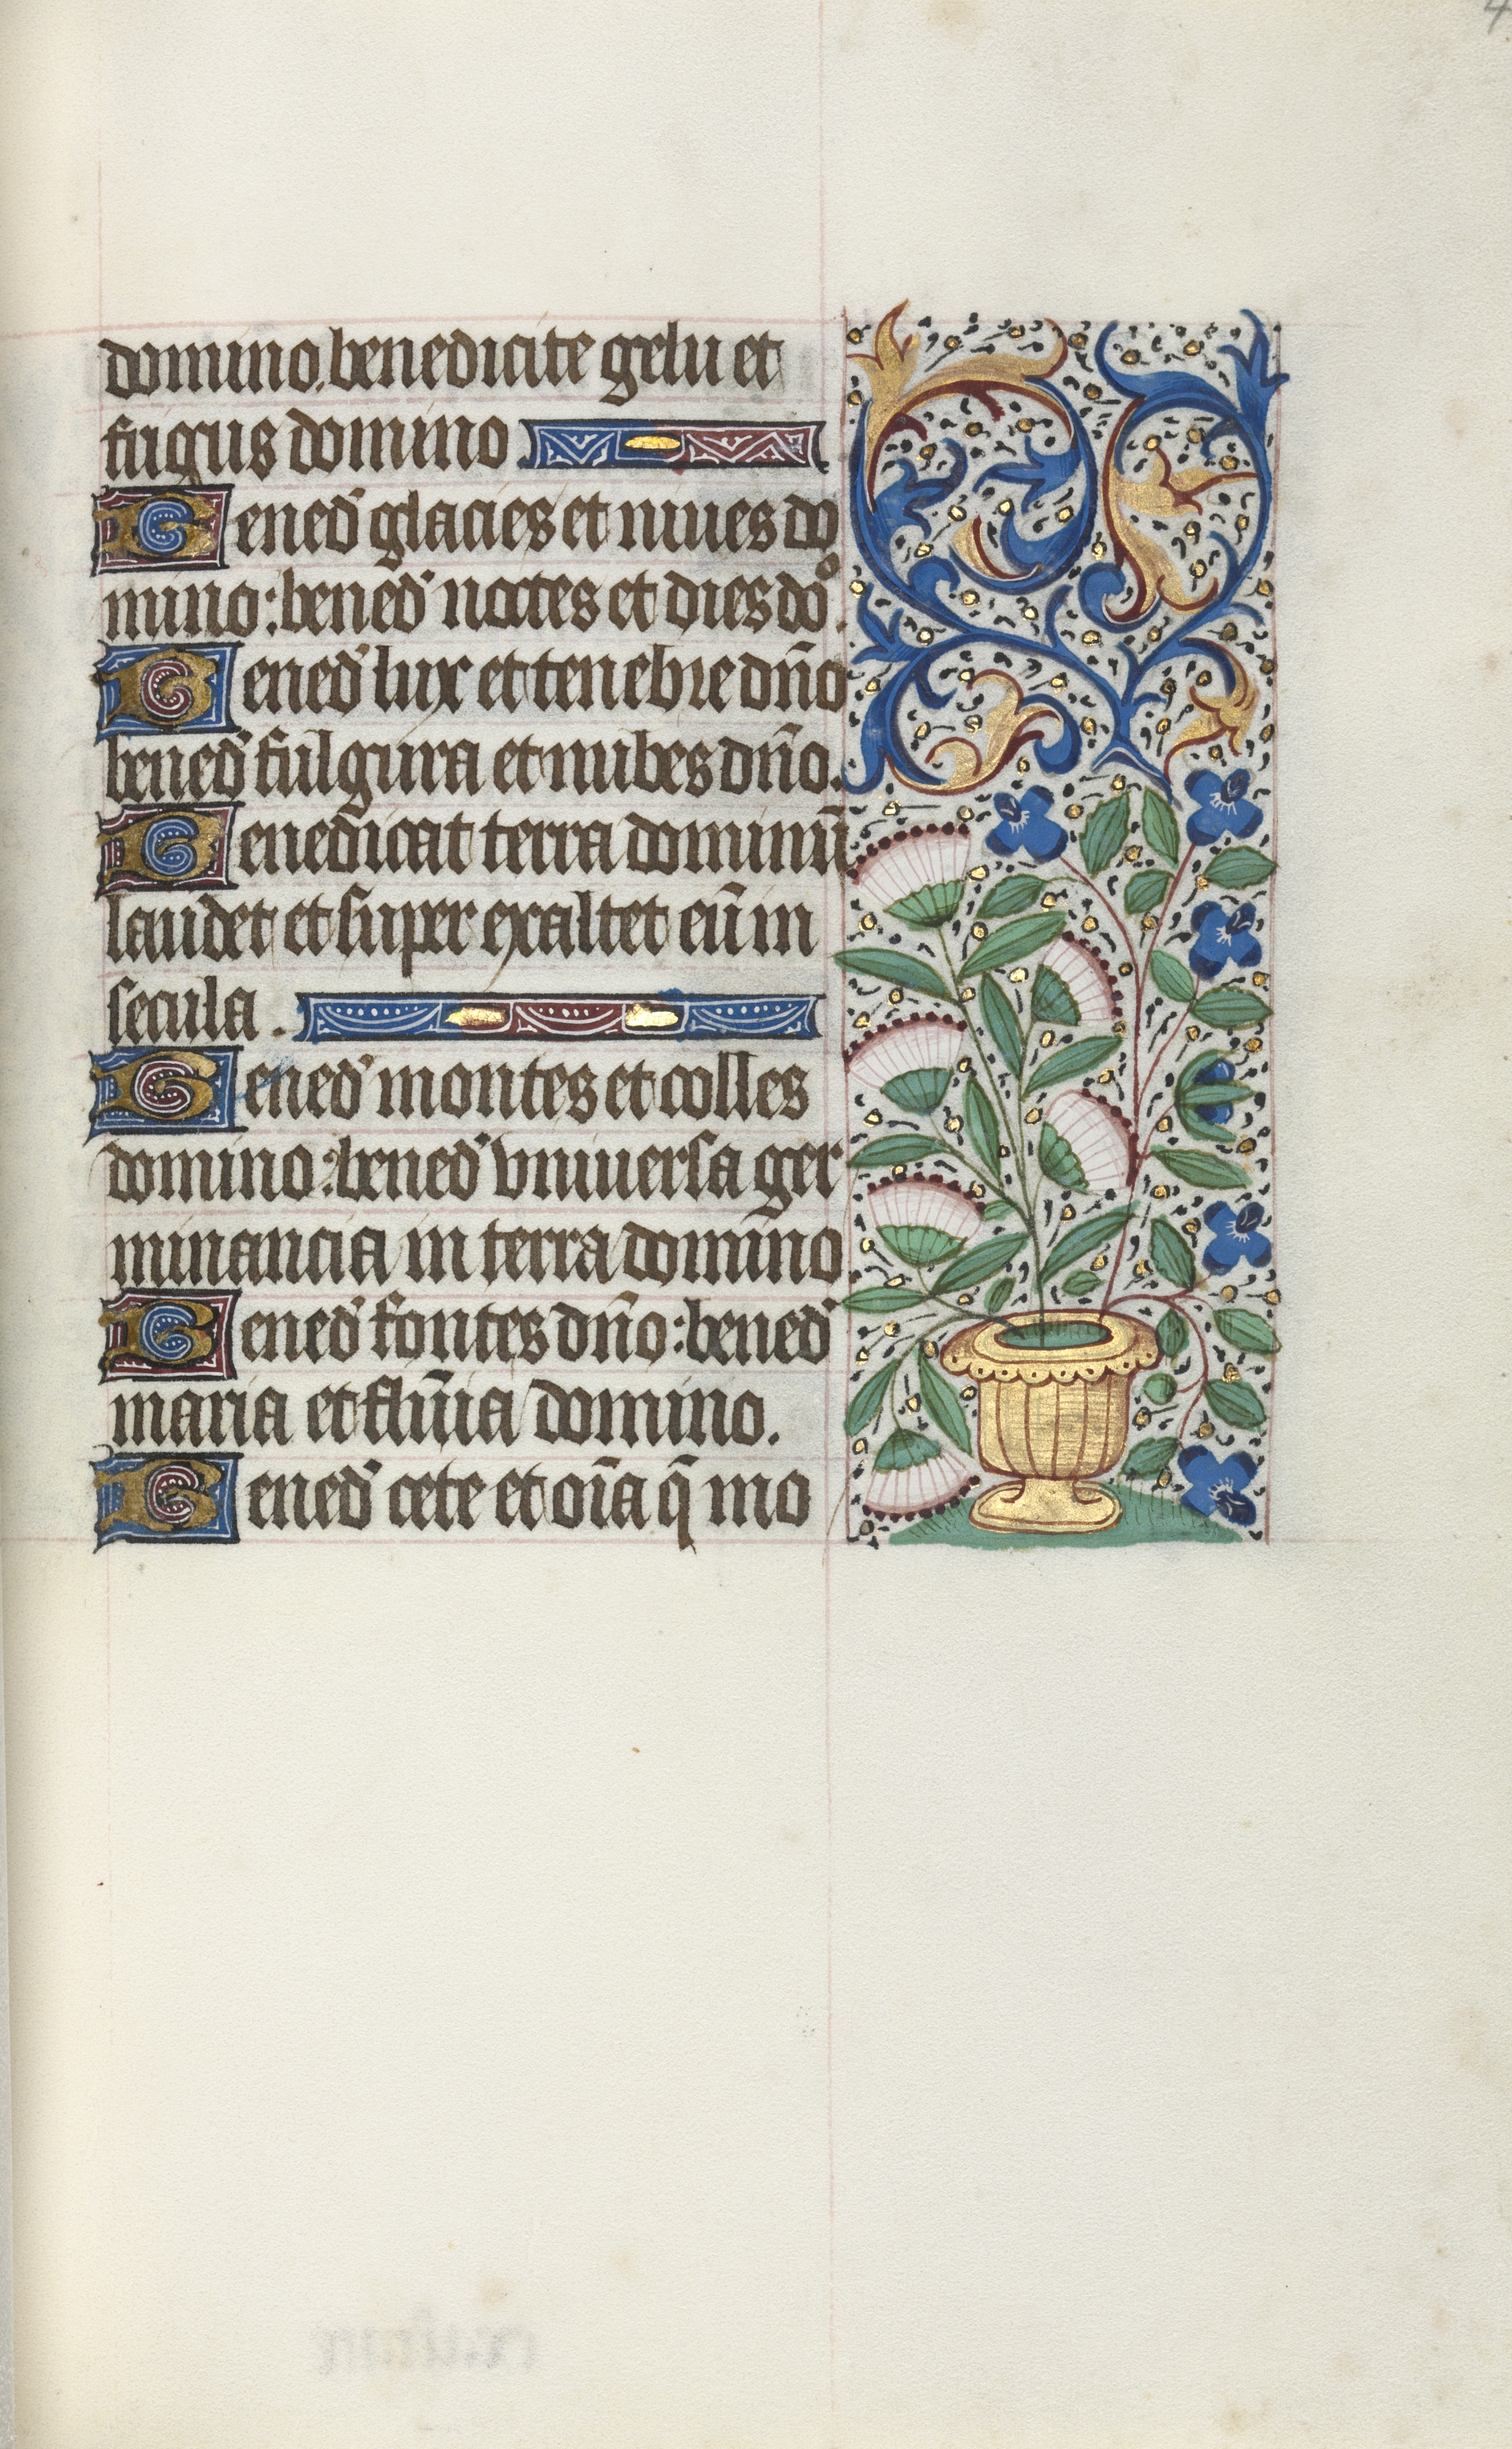 4
domino. benedicite gelu et
frigus domino
Bened' glacies et niues do
mino: bened' noctes et dies do.
Bened' lux et tenebre dño
bened' fulgura et nubes dño.
Benedicat terra dominū
laudet et super exaltet eū in
secula.
Bened' montes et colles
domino: bened' vniuersa ger
minancia in terra domino
Bened' fontes dño: bened'
maria et flūia domino.
Bened' cete et oīa q̄ mo